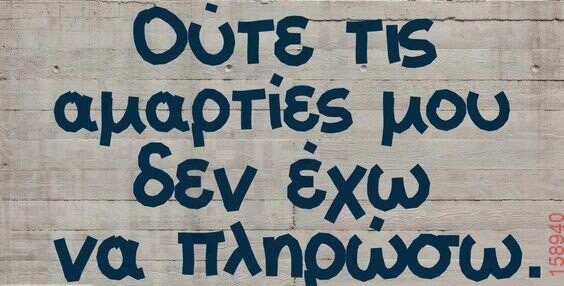 Ούτε τις
αμαρτίες μου
δεν έχω
να πληρώσω.
158940